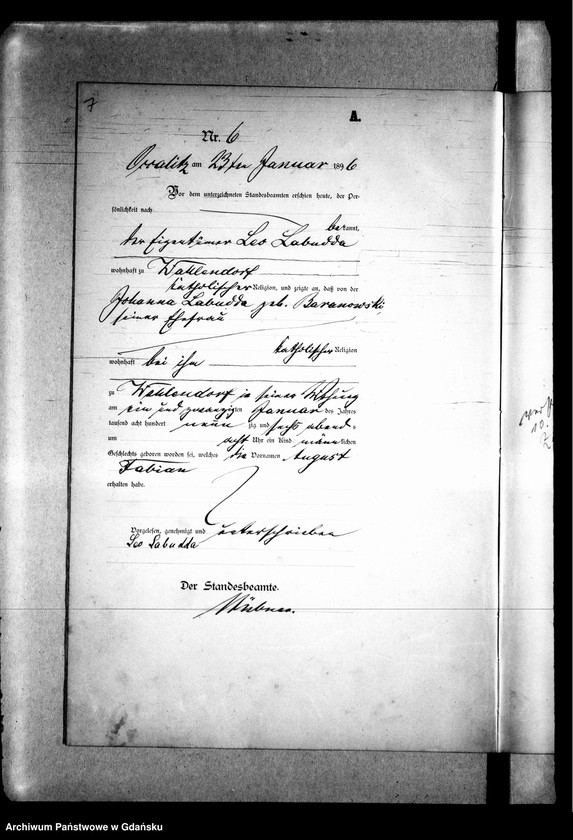 7
A.
Nr. 6
Occalitz am 23ten Januar 1896
Vor dem unterzeichneten Standesbeamten erschien heute, der Per-
sönlichkeit nach
bekannt,
der Eigentümer Leo Labudda
wohnhaft zu Wahlendorf
katholischer Religion, und zeigte an, daß von der
Johanna Labudda geb. Baranowski,
seiner Ehefrau
katholischer Religion
wohnhaft bei ihm
zu Wahlendorf in seiner Wohnung
am ein und zwanzigsten Januar des Jahres
tausend acht hundert neunzig und sechs abends
um acht Uhr ein Kind männlichen
Geschlechts geboren worden sei, welches die Vornamen August
Fabian
erhalten habe.
Vorgelesen, genehmigt und unterschrieben
Leo Labudda
Der Standesbeamte.
10.
Archiwum Państwowe w Gdańsku